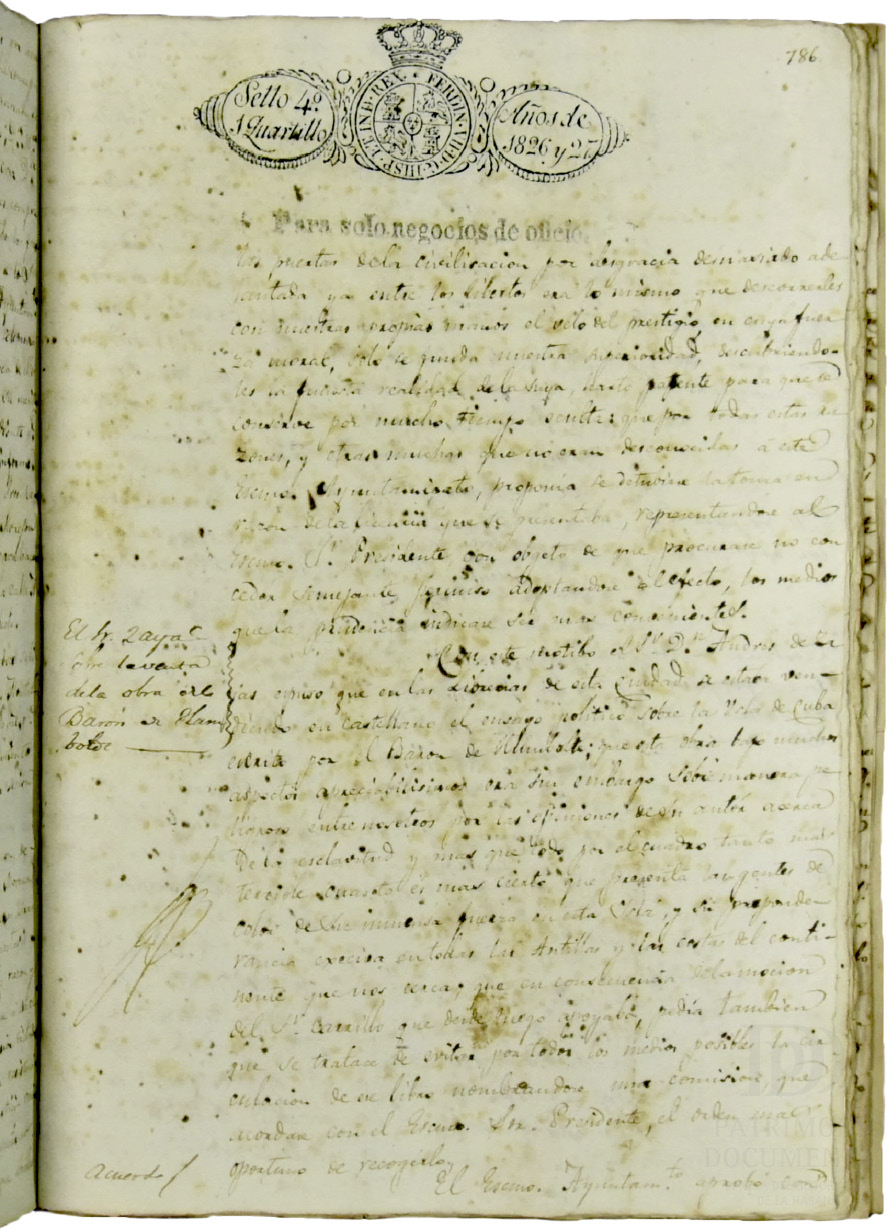 186
Sello 4º
1 Quartillo
HISP. ET IND. REX. FERDIN. VII. D. G.
Años de
1826 y 27
Para solo negocios de oficio.
las puertas de la civilisacion por desgracia demasiado ade
lantada ya entre los libertos era lo mismo que descorrerles
con nuestras propias manos el velo del prestigio, en cuya fuer
za moral, solo se funda nuestra superioridad, descubriendo
les la funesta realidad de la suya, harto patente para que se
conserve por mucho tiempo oculta: que por todas estas ra
zones, y otras muchas que no eran desconocidas á este
Escmo. Ayuntamiento, proponia se detubiese la toma en
razon de la licencia que se presentaba, representandose al
Escmo. Sr. Presidente con objeto de que procurase no con
ceder semejante permiso adoptandose al efecto, los medios
que la prudencia indicase ser mas convenientes.
El Sr. Zayas
sobre la venta
de la obra del
Barón de Hum
bolt
Con este motibo el Sr. Dn. Andres de Za
yas espuso que en las librerias de esta Ciudad se estaba ven
diendo en castellano el ensayo politico sobre la Isla de Cuba
escrita por el Baron de Humbolt; que esta obra bajo muchos
aspectos apreciabilisima era sin embargo sobre manera pe
ligrosa entre nosotros por las opiniones de su autor acerca
de la esclavitud y mas que todo por el cuadro tanto mas
terrible cuanto es mas cierto que presenta las gentes de
color de su inmensa fuerza en esta Isla, y su preponde
rancia excesiva en todas las Antillas y las costas del conti
nente que nos cerca; que en consecuencia de la mocion
del Sr. Carrillo que desde luego apoyaba, pedia tambien
que se tratase de evitar por todos los medios posibles la cir
culacion de ese libro nombrandose una comision que
acordase con el Escmo. Sor. Presidente, el orden mas
oportuno de recogerlo.
Acuerdo
El Escmo. Ayuntamto. aprobó con